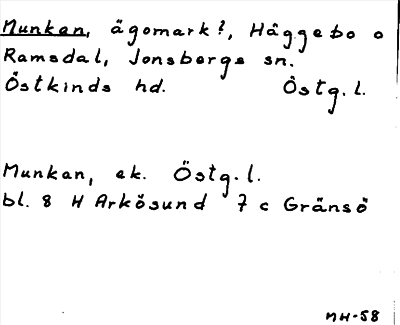 Munkan, ägomark?, Häggebo o
Ramsdal, Jonsbergs sn.
Östkinds hd. Östg.l.
Munkan, ek. Östg.l.
bl. 8 H Arkösund 7 c Gränsö
MH-58